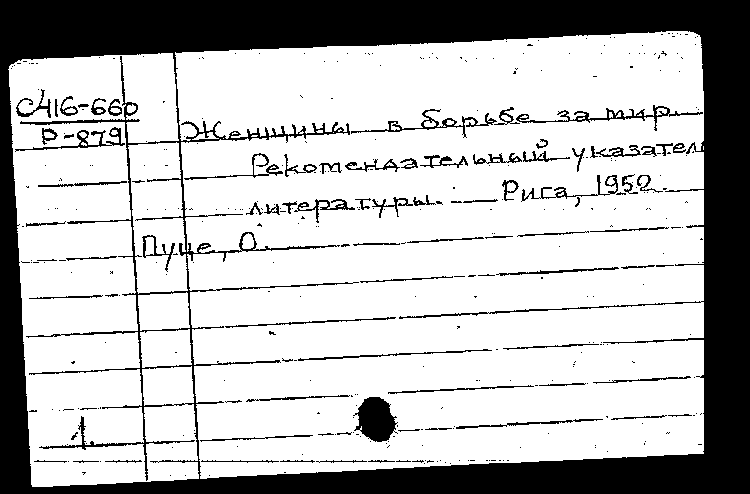 С416-660
Р-879
Женщины в борьбе за мир.
Рекомендательный указател
литературы. — Рига, 1952.
Пуце, О.
1.